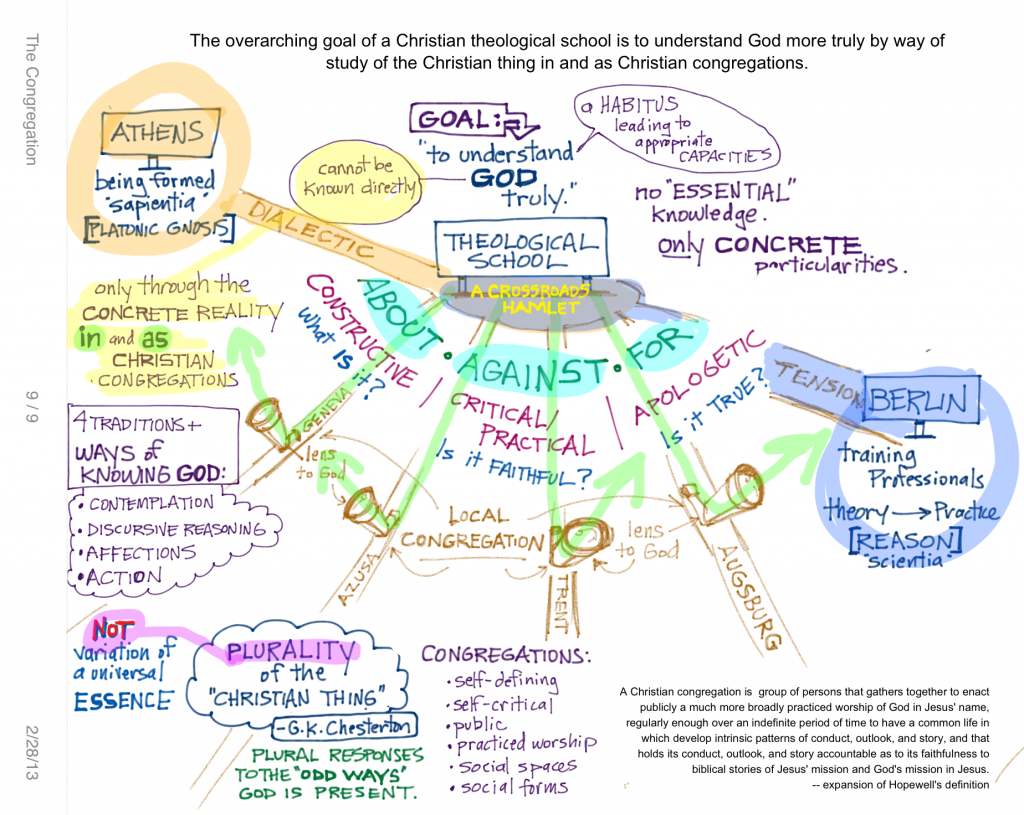 The overarching goal of a Christian theological school is to understand God more truly by way of
study of the Christian thing in and as Christian congregations.
The Congregation
9 / 9
2/28/13
ATHENS
being formed
"sapientia"
[PLATONIC GNOSIS]
DIALECTIC
cannot be
known directly
GOAL:
"to understand
GOD
truly."
a HABITUS
leading to
appropriate
CAPACITIES
no "ESSENTIAL"
knowledge.
only CONCRETE
particularities.
THEOLOGICAL
SCHOOL
A CROSSROADS
HAMLET
only through the
CONCRETE REALITY
in and as
CHRISTIAN
CONGREGATIONS
ABOUT • AGAINST • FOR
CONSTRUCTIVE
What IS it?
CRITICAL/
PRACTICAL
Is it FAITHFUL?
APOLOGETIC
Is it TRUE?
TENSION
BERLIN
training
Professionals
theory → Practice
[REASON]
"scientia"
4 TRADITIONS +
WAYS of
KNOWING GOD:
• CONTEMPLATION
• DISCURSIVE REASONING
• AFFECTIONS
• ACTION
GENEVA
lens
to God
AZUSA
LOCAL
CONGREGATION
TRENT
lens
to God
AUGSBURG
NOT
variation of
a universal
ESSENCE
PLURALITY
of the
"CHRISTIAN THING"
- G.K. Chesterton
PLURAL RESPONSES
TO THE "ODD WAYS"
GOD IS PRESENT.
CONGREGATIONS:
• self-defining
• self-critical
• public
• practiced worship
• social spaces
• social forms
A Christian congregation is group of persons that gathers together to enact
publicly a much more broadly practiced worship of God in Jesus' name,
regularly enough over an indefinite period of time to have a common life in
which develop intrinsic patterns of conduct, outlook, and story, and that
holds its conduct, outlook, and story accountable as to its faithfulness to
biblical stories of Jesus' mission and God's mission in Jesus.
-- expansion of Hopewell's definition